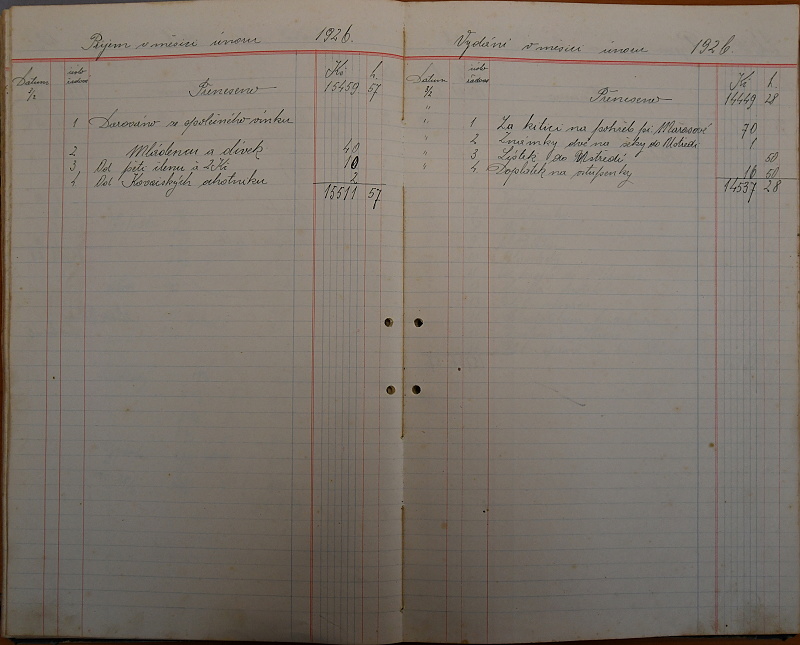 Příjem v měsíci únoru 1926.
Datum číslo řádové Kč h.
2/2 Přeneseno 15459 57
1 Darováno ze společného vínku
2 Mládenců a dívek 40
3 Od pěti členů à 2 Kč 10
4 Od Kovářských ochotníků 2
15511 57
Vydání v měsíci únoru 1926.
Datum číslo řádové Kč h.
2/2 Přeneseno 14449 28
" 1 Za kytici na pohřeb pí 70
" 2 Známky dvě na šeky do Ústředí 1
" 3 Lístek do Ústředí 50
" 4 Doplatek na vstupenky 16 50
14537 28